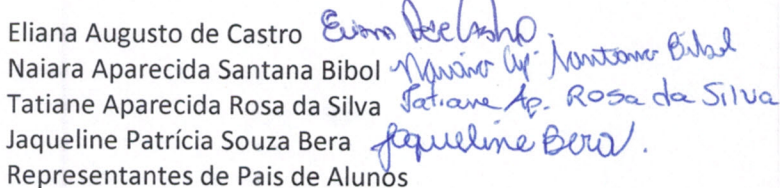 Eliana Augusto de Castro Eliana A de Castro
Naiara Aparecida Santana Bibol Naiara Ap. Santana Bibol
Tatiane Aparecida Rosa da Silva Tatiane Ap. Rosa da Silva
Jaqueline Patrícia Souza Bera Jaqueline Bera.
Representantes de Pais de Alunos